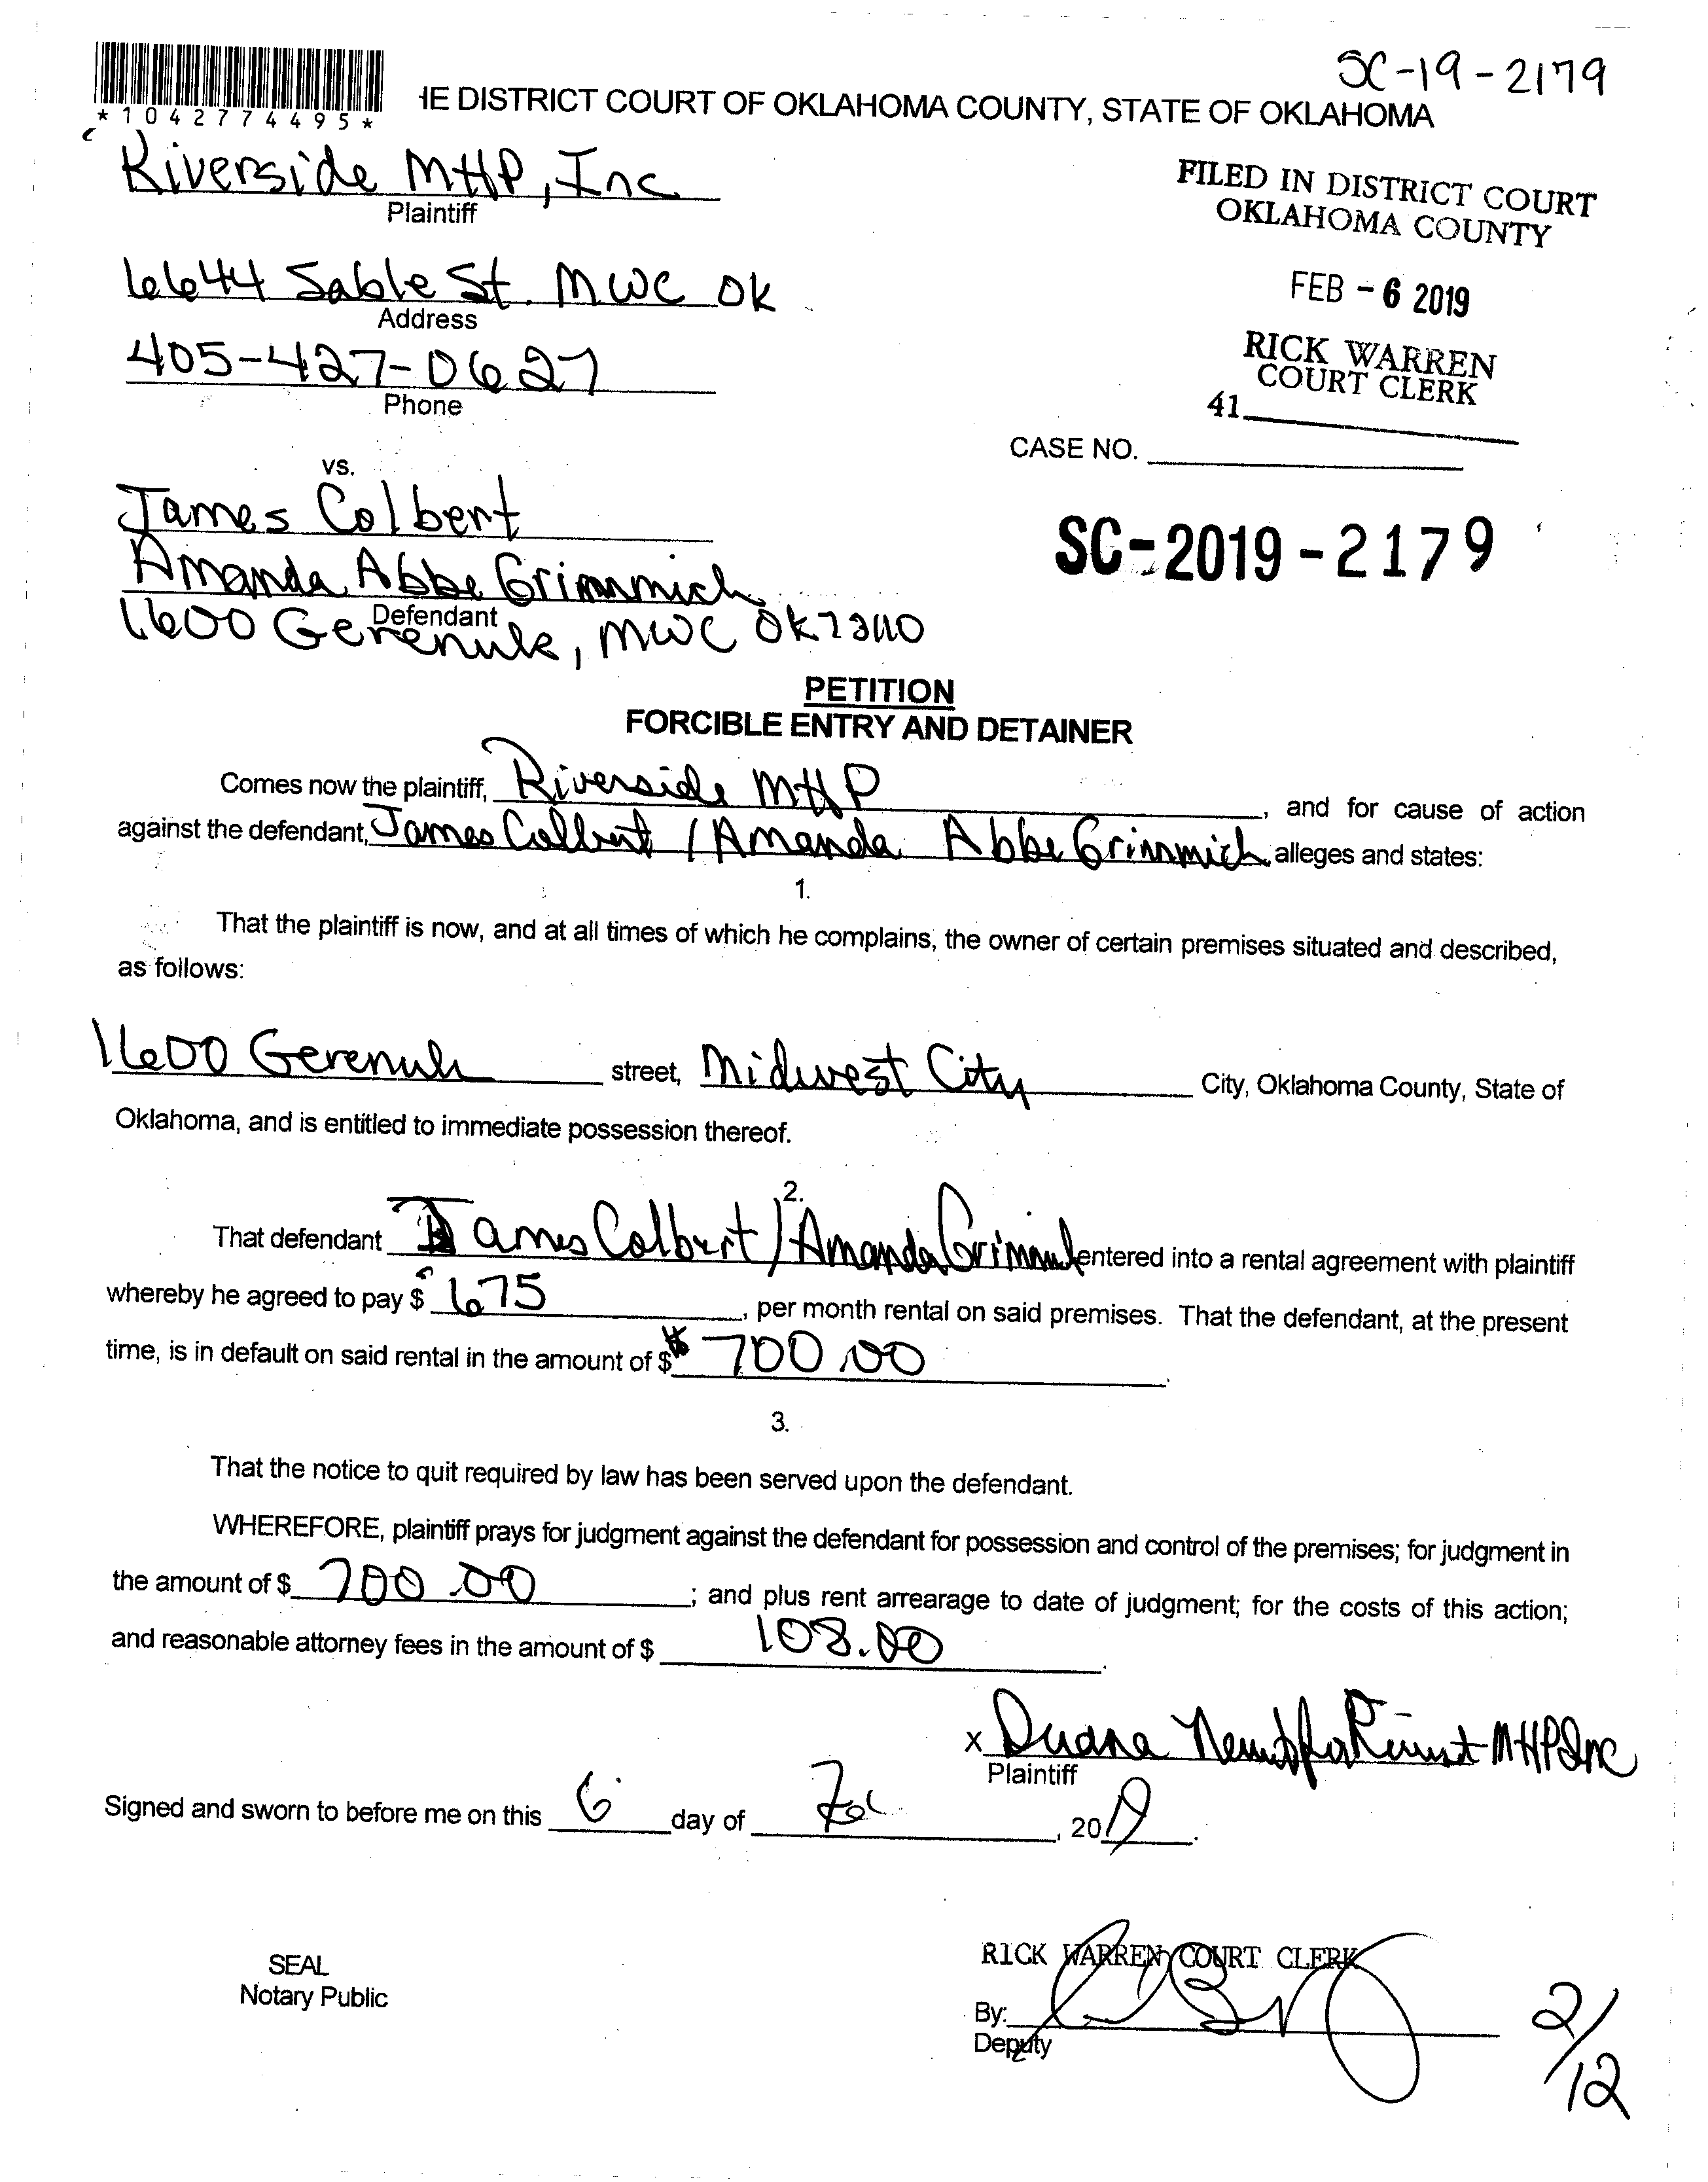 SC-19-2179
*1042774495*
IE DISTRICT COURT OF OKLAHOMA COUNTY, STATE OF OKLAHOMA
Riverside MHP, Inc
Plaintiff
FILED IN DISTRICT COURT
OKLAHOMA COUNTY
6644 Sable St. MWC OK
Address
FEB - 6 2019
405-427-0627
Phone
RICK WARREN
COURT CLERK
41
CASE NO.
vs.
James Colbert
Amanda Abbe Grimmich
Defendant
1600 Gerenuk, MWC OK
SC-2019-2179
PETITION
FORCIBLE ENTRY AND DETAINER
Comes now the plaintiff, Riverside MHP, and for cause of action
against the defendant, James Colbert / Amanda Abbe Grimmich alleges and states:
1.
That the plaintiff is now, and at all times of which he complains, the owner of certain premises situated and described,
as follows:
1600 Gerenuk street, Midwest City City, Oklahoma County, State of
Oklahoma, and is entitled to immediate possession thereof.
2.
That defendant James Colbert / Amanda entered into a rental agreement with plaintiff
whereby he agreed to pay $ 675, per month rental on said premises. That the defendant, at the present
time, is in default on said rental in the amount of $ 700.00.
3.
That the notice to quit required by law has been served upon the defendant.
WHEREFORE, plaintiff prays for judgment against the defendant for possession and control of the premises; for judgment in
the amount of $ 700.00; and plus rent arrearage to date of judgment; for the costs of this action;
and reasonable attorney fees in the amount of $ 108.00.
x Duana MHP Inc
Plaintiff
Signed and sworn to before me on this 6 day of, 2019.
SEAL
Notary Public
RICK WARREN COURT CLERK
By:
Deputy
2/12